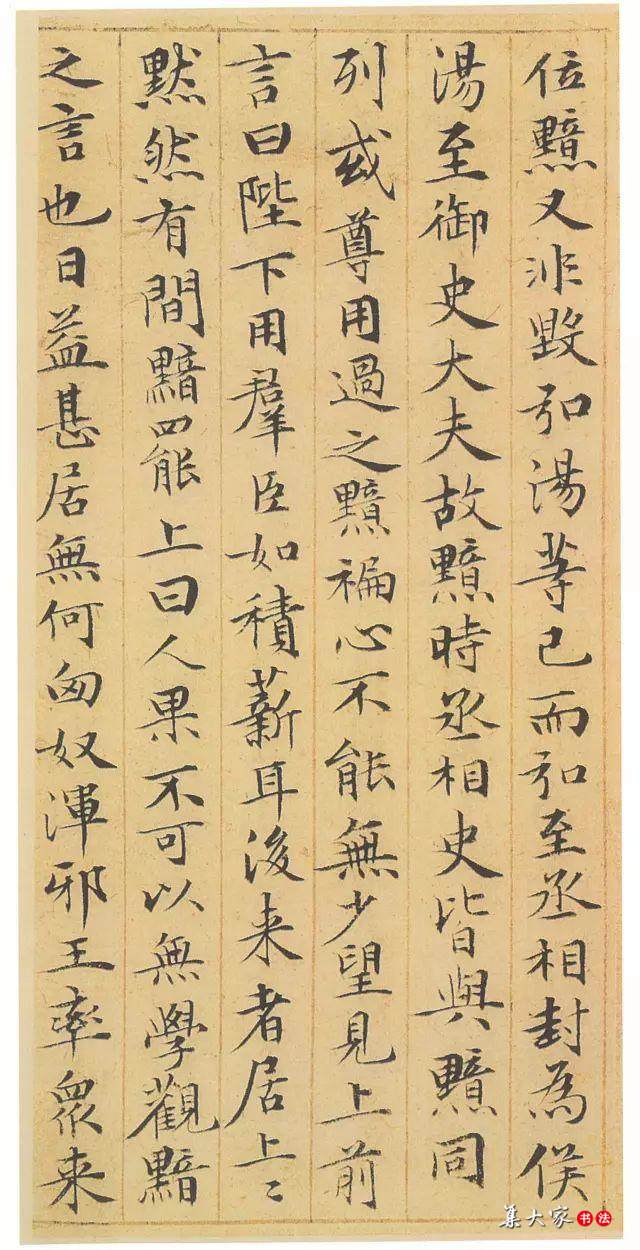 位黯又非毀弘湯等已而弘至丞相封為侯
湯至御史大夫故黯時丞相史皆與黯同
列或尊用過之黯褊心不能無少望見上前
言曰陛下用羣臣如積薪耳後来者居上〻
黙然有間黯罷上曰人果不可以無學觀黯
之言也日益甚居無何匈奴渾邪王率衆来
集大家书法